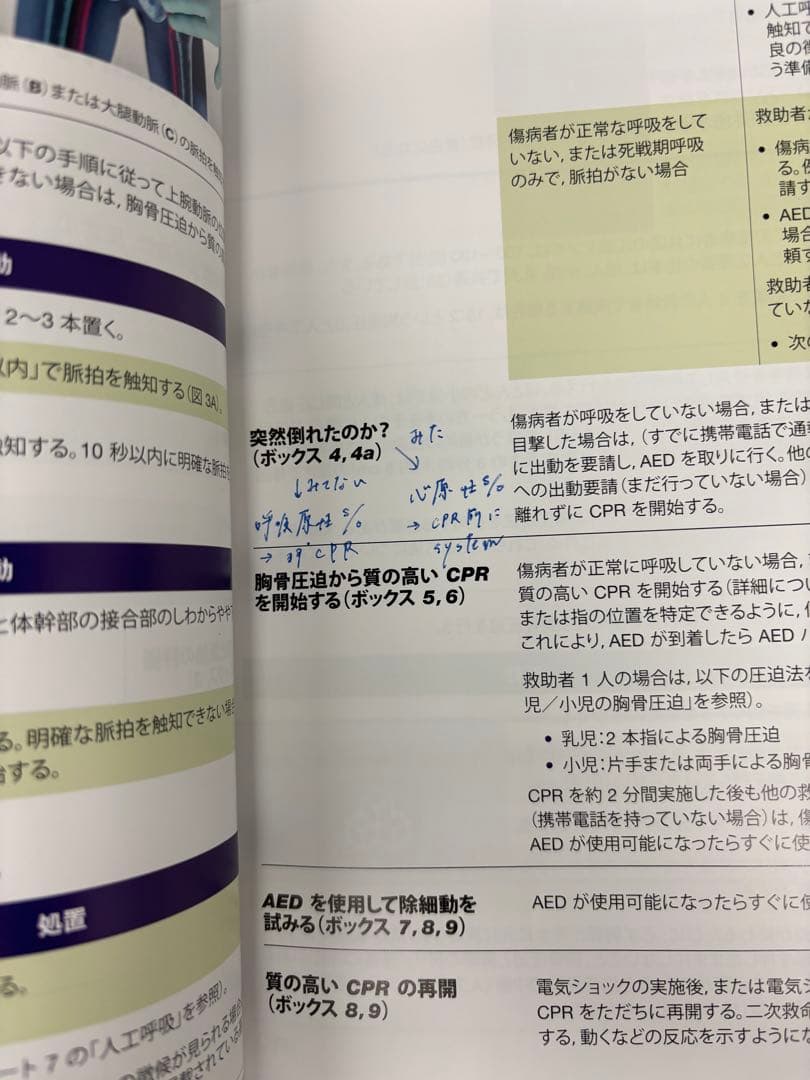 脈（B）または大腿動脈（C）の脈拍を
以下の手順に従って上腕動脈の
きない場合は，胸骨圧迫から質の
動
2〜3 本置く。
以内」で脈拍を触知する（図 3A）。
触知する。10 秒以内に明確な脈拍を
動
と体幹部の接合部のしわからやや
る。明確な脈拍を触知できない場合
始する。
処置
る。
ート 7 の「人工呼吸」を参照）。
の徴候が見られる場合
載されている
• 人工呼
触知で
良の徴
う準備
傷病者が正常な呼吸をして
いない，または死戦期呼吸
のみで，脈拍がない場合
救助者が
• 傷病
る。例
請す
• AED
場合
頼す
救助者
ていな
• 次の
突然倒れたのか？
（ボックス 4，4a）
みた
↓みてない
呼吸原性 s/o
→ CPR
心原性 s/o
→ CPR前に
system
傷病者が呼吸をしていない場合，または
目撃した場合は，（すでに携帯電話で通報
に出動を要請し，AED を取りに行く。他の
への出動要請（まだ行っていない場合）
離れずに CPR を開始する。
胸骨圧迫から質の高い CPR
を開始する（ボックス 5，6）
傷病者が正常に呼吸していない場合，
質の高い CPR を開始する（詳細につい
または指の位置を特定できるように，
これにより，AED が到着したら AED パ
救助者 1 人の場合は，以下の圧迫法を
児／小児の胸骨圧迫」を参照）。
• 乳児：2 本指による胸骨圧迫
• 小児：片手または両手による胸骨
CPR を約 2 分間実施した後も他の救
（携帯電話を持っていない場合）は，傷
AED が使用可能になったらすぐに使
AED を使用して除細動を
試みる（ボックス 7，8，9）
AED が使用可能になったらすぐに使
質の高い CPR の再開
（ボックス 8，9）
電気ショックの実施後，または電気シ
CPR をただちに再開する。二次救命
する，動くなどの反応を示すようにな